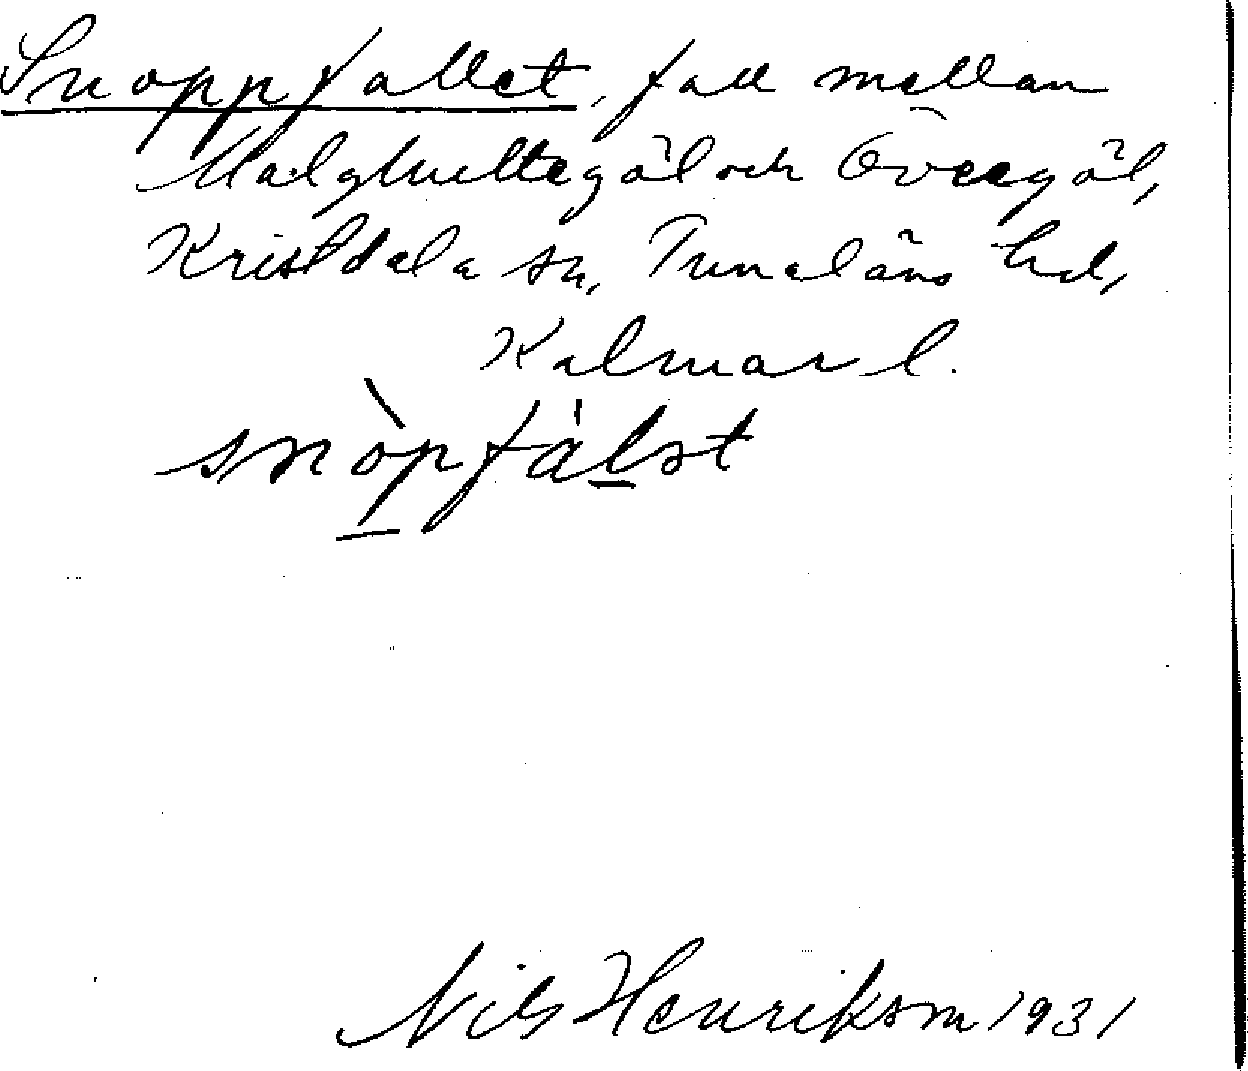 Snoppfallet, fall mellan
Malghultegöl och Övergöl,
Kristdala sn, Tunaläns hd,
Kalmar l.
snòpfàlət
Nils Henrikson 1931